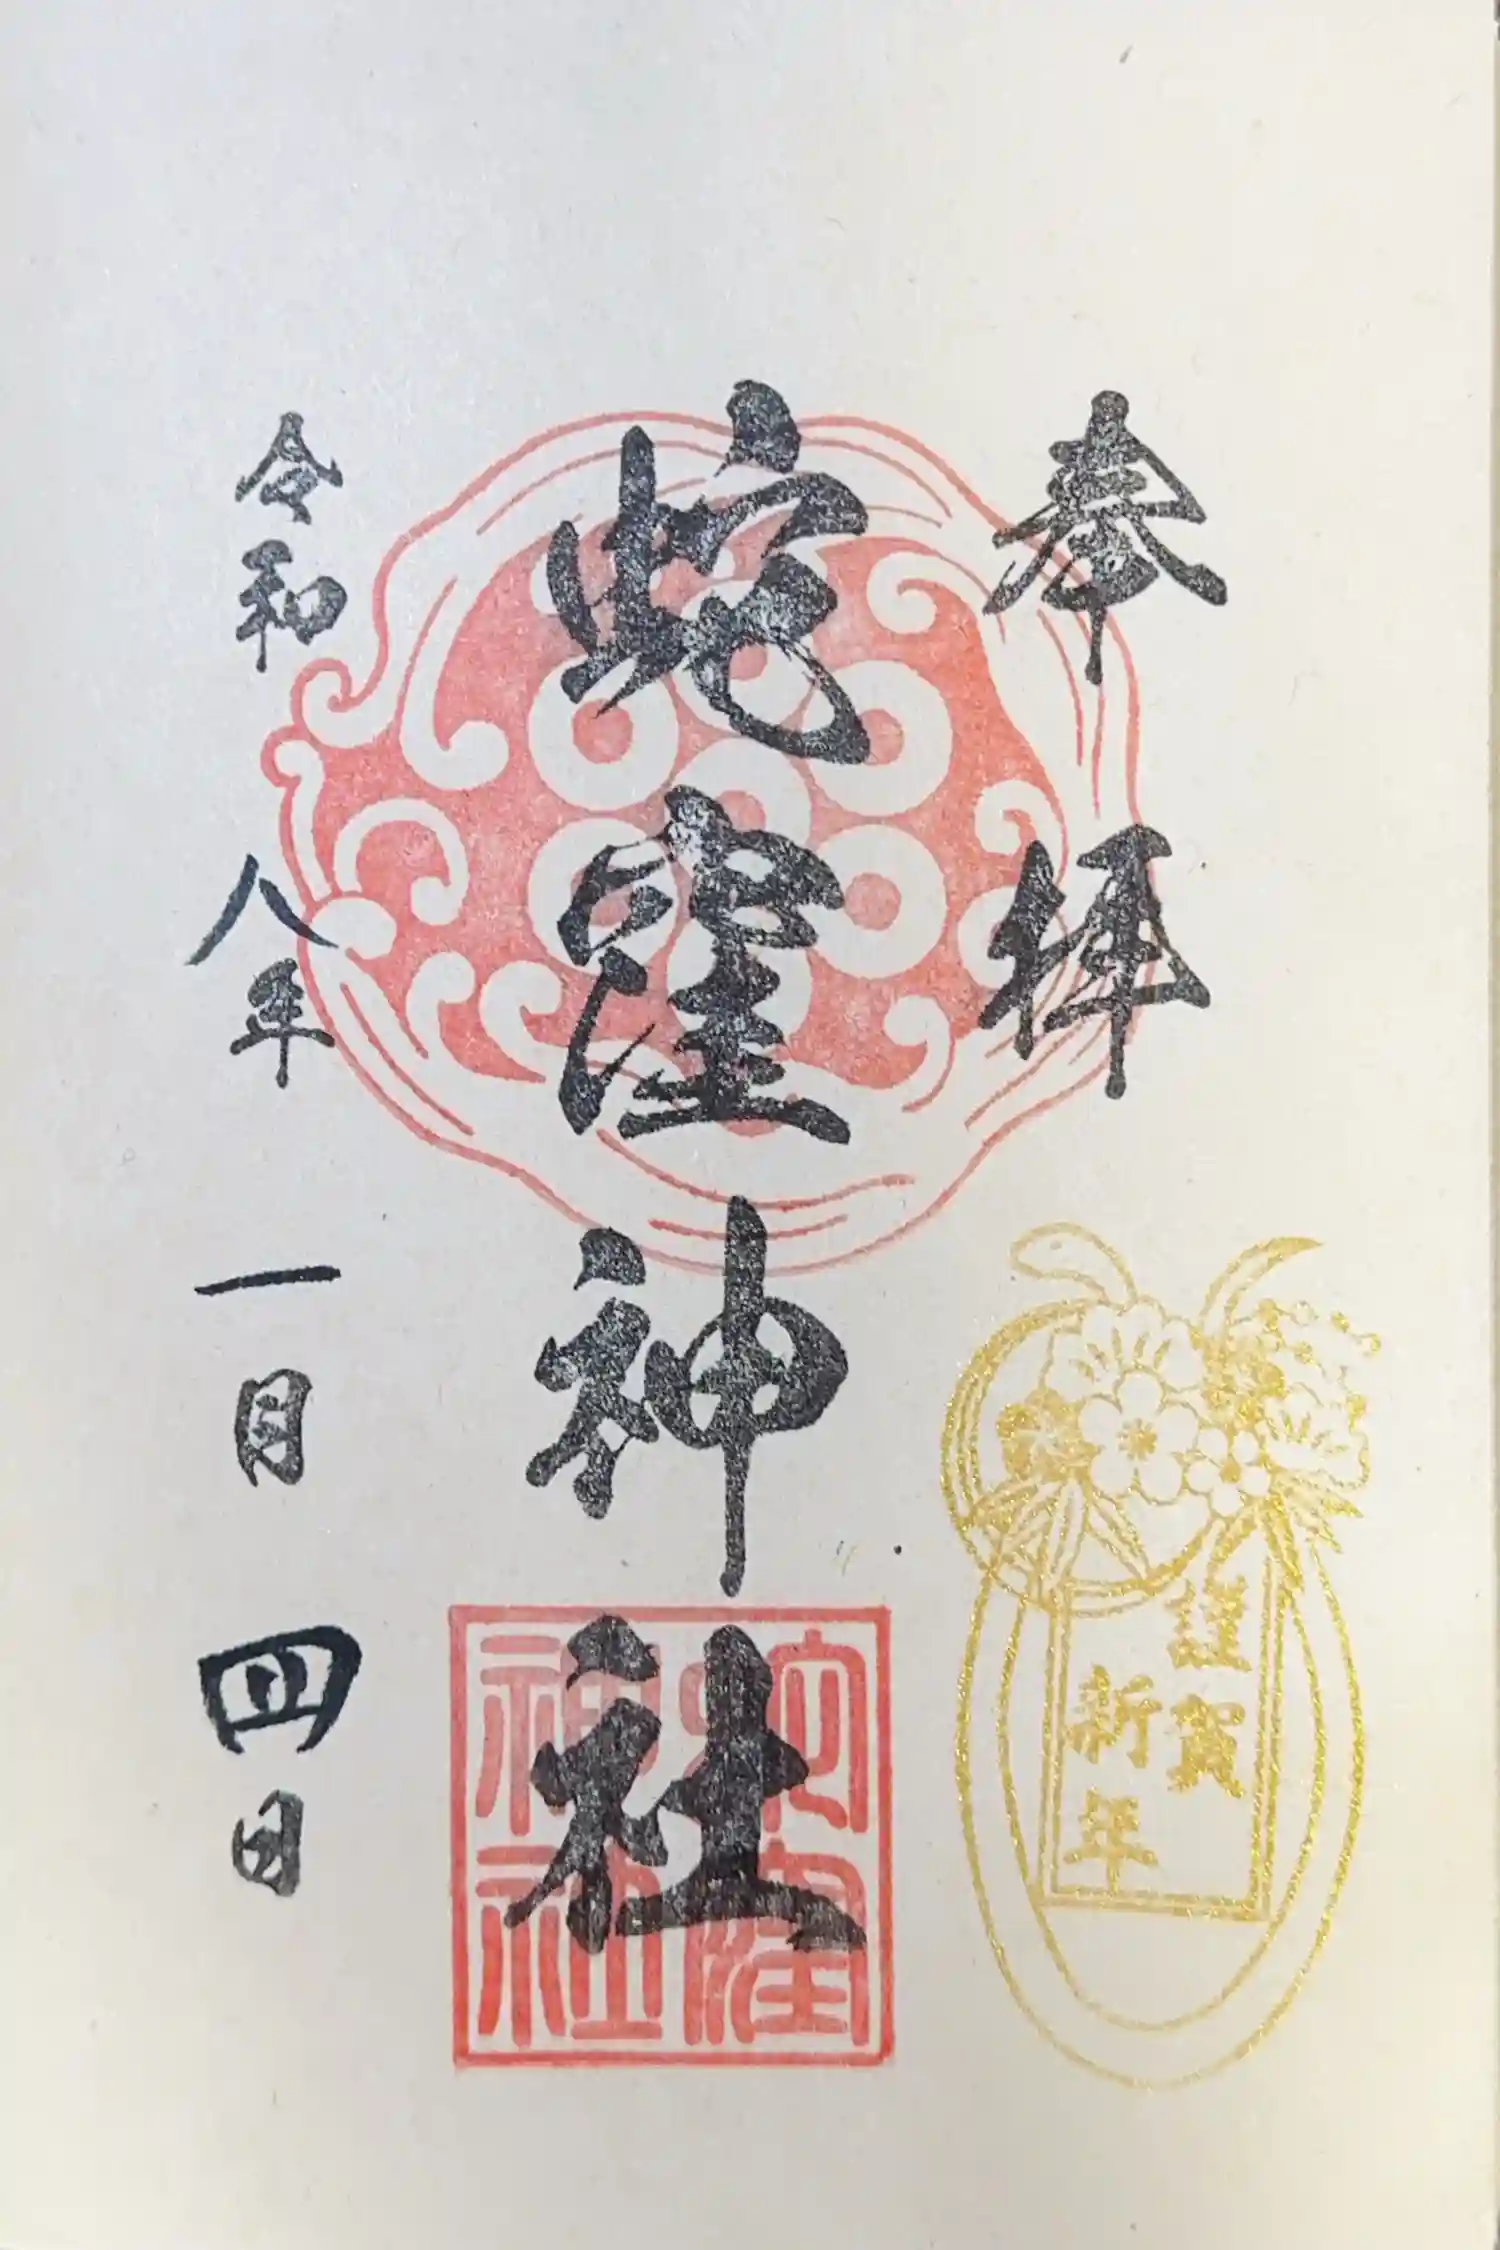 奉拝
蛇窪神社
令和八年一月四日
蛇窪
神社
謹賀
新年